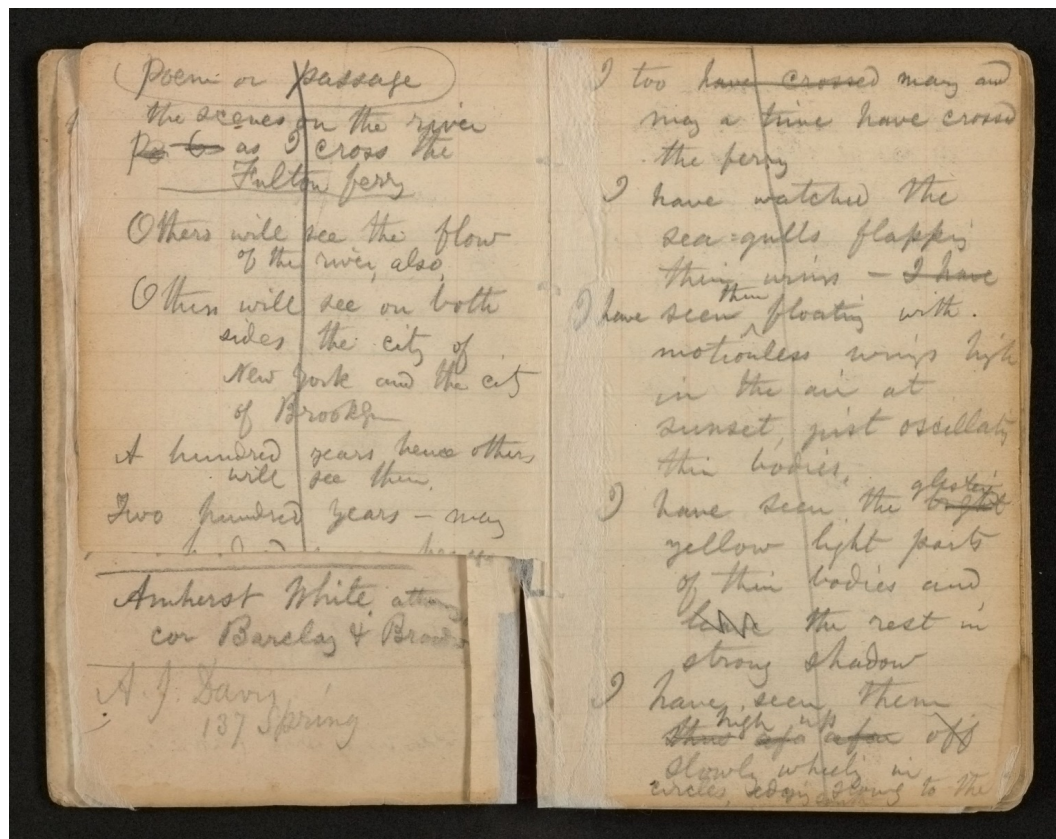 Poem or passage
the scenes on the river
as I cross the
Fulton ferry
Others will see the flow
of the river, also,
Others will see on both
sides the city of
New York and the city
of Brooklyn
A hundred years hence others
will see them,
Two hundred years – many
Amherst White,
cor Barclay &
A. J. Davis,
137 Spring
I too have crossed many and
many a time have crossed
the ferry
I have watched the
sea-gulls flapping
their wings – I have
I have seen them floating with
motionless wings high
in the air at
sunset, just oscillating
their bodies,
I have seen the
yellow light parts
of their bodies and
the rest in
strong shadow
I have seen them
high up
off
slowly wheeling in
circles, edging along to the